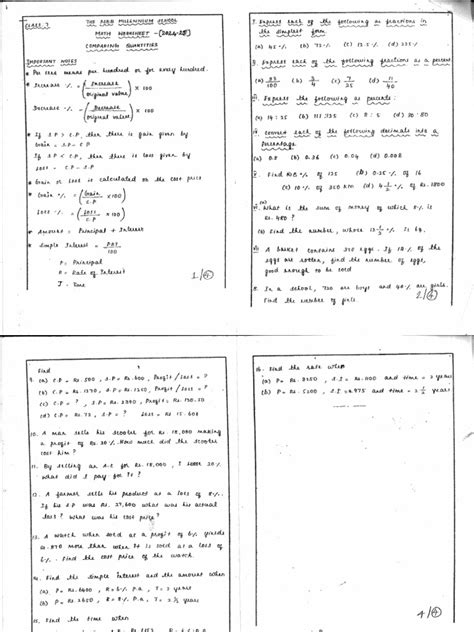 CLASS 7
THE ASRA MILLENNIUM SCHOOL
MATH WORKSHEET (2024-25)
COMPARING QUANTITIES
IMPORTANT NOTES
* Per cent means per hundred or for every hundred.
* Increase % = (Increase / original value) × 100
Decrease % = (Decrease / original value) × 100
* If S.P > C.P, then there is gain given by
Gain = S.P - C.P
If S.P < C.P, then there is loss given by
Loss = C.P - S.P
* Gain or loss is calculated on the cost price
* Gain % = (Gain / C.P × 100)
Loss % = (Loss / C.P × 100)
* Amount = Principal + Interest
* Simple Interest = PRT / 100
P = Principal
R = Rate of Interest
T = Time
1/4
Express each of the following as fractions in
the simplest form
(a) 45% (b) (c) 12.5% (d)
Express each of the following fractions as a percent
(a) 83/100 (b) 3/4 (c) 7/25 (d) 11/40
Express the following as percents:
(a) 14 : 25 (b) (c) 8 : 5 (d) 20 : 80
Convert each of the following decimals into a
percentage
(a) 0.8 (b) 0.36 (c) 0.04 (d) 0.008
Find of 125 (b) 0.25% of 16
(c) 10% of 250 km (d) of Rs. 1800
What is the sum of money of which 8% is
Rs. 480?
Find the number, whose is 64.
A basket contains eggs. If 10% of the
eggs are rotten, find the number of eggs,
good enough to be sold
8. In a school, 720 are boys and 40% are girls.
Find the number of girls
2/4
Find
9. (a) C.P = Rs. 500, S.P = Rs. 600, Profit / Loss = ?
(b) C.P = Rs. 1370, S.P = Rs. 1250, Profit / Loss = ?
(c) C.P = ?, S.P = Rs. Profit = Rs.
(d) C.P = Rs. 72, S.P = ? Loss = Rs 15.60
10. A man sells his scooter for Rs. 18,000 making
a profit of Rs. 20%. How much did the scooter
cost him?
11. By selling an A.C for Rs. I lost 20%
what did I pay for it?
12. A farmer sells his product as a loss of 8%.
If his S.P was Rs. 27,600 what was his actual
loss? What was his cost price?
13. A watch when sold at a profit of 6% yields
Rs. more than when it is sold at a loss of
6%. Find the cost price of the watch.
14. Find the simple interest and the amount when
(a) P = Rs. 6400, R = 6% p.a, T = 2 years
(b) P = Rs. 2650, R = 8% p.a, T = 2½ years
15. Find the time when
16. Find the rate when
(a) P = Rs. S.I = Rs. 1100 and time = 2 years
(b) P = Rs. 5200, S.I = Rs. 975 and time = years
4/4